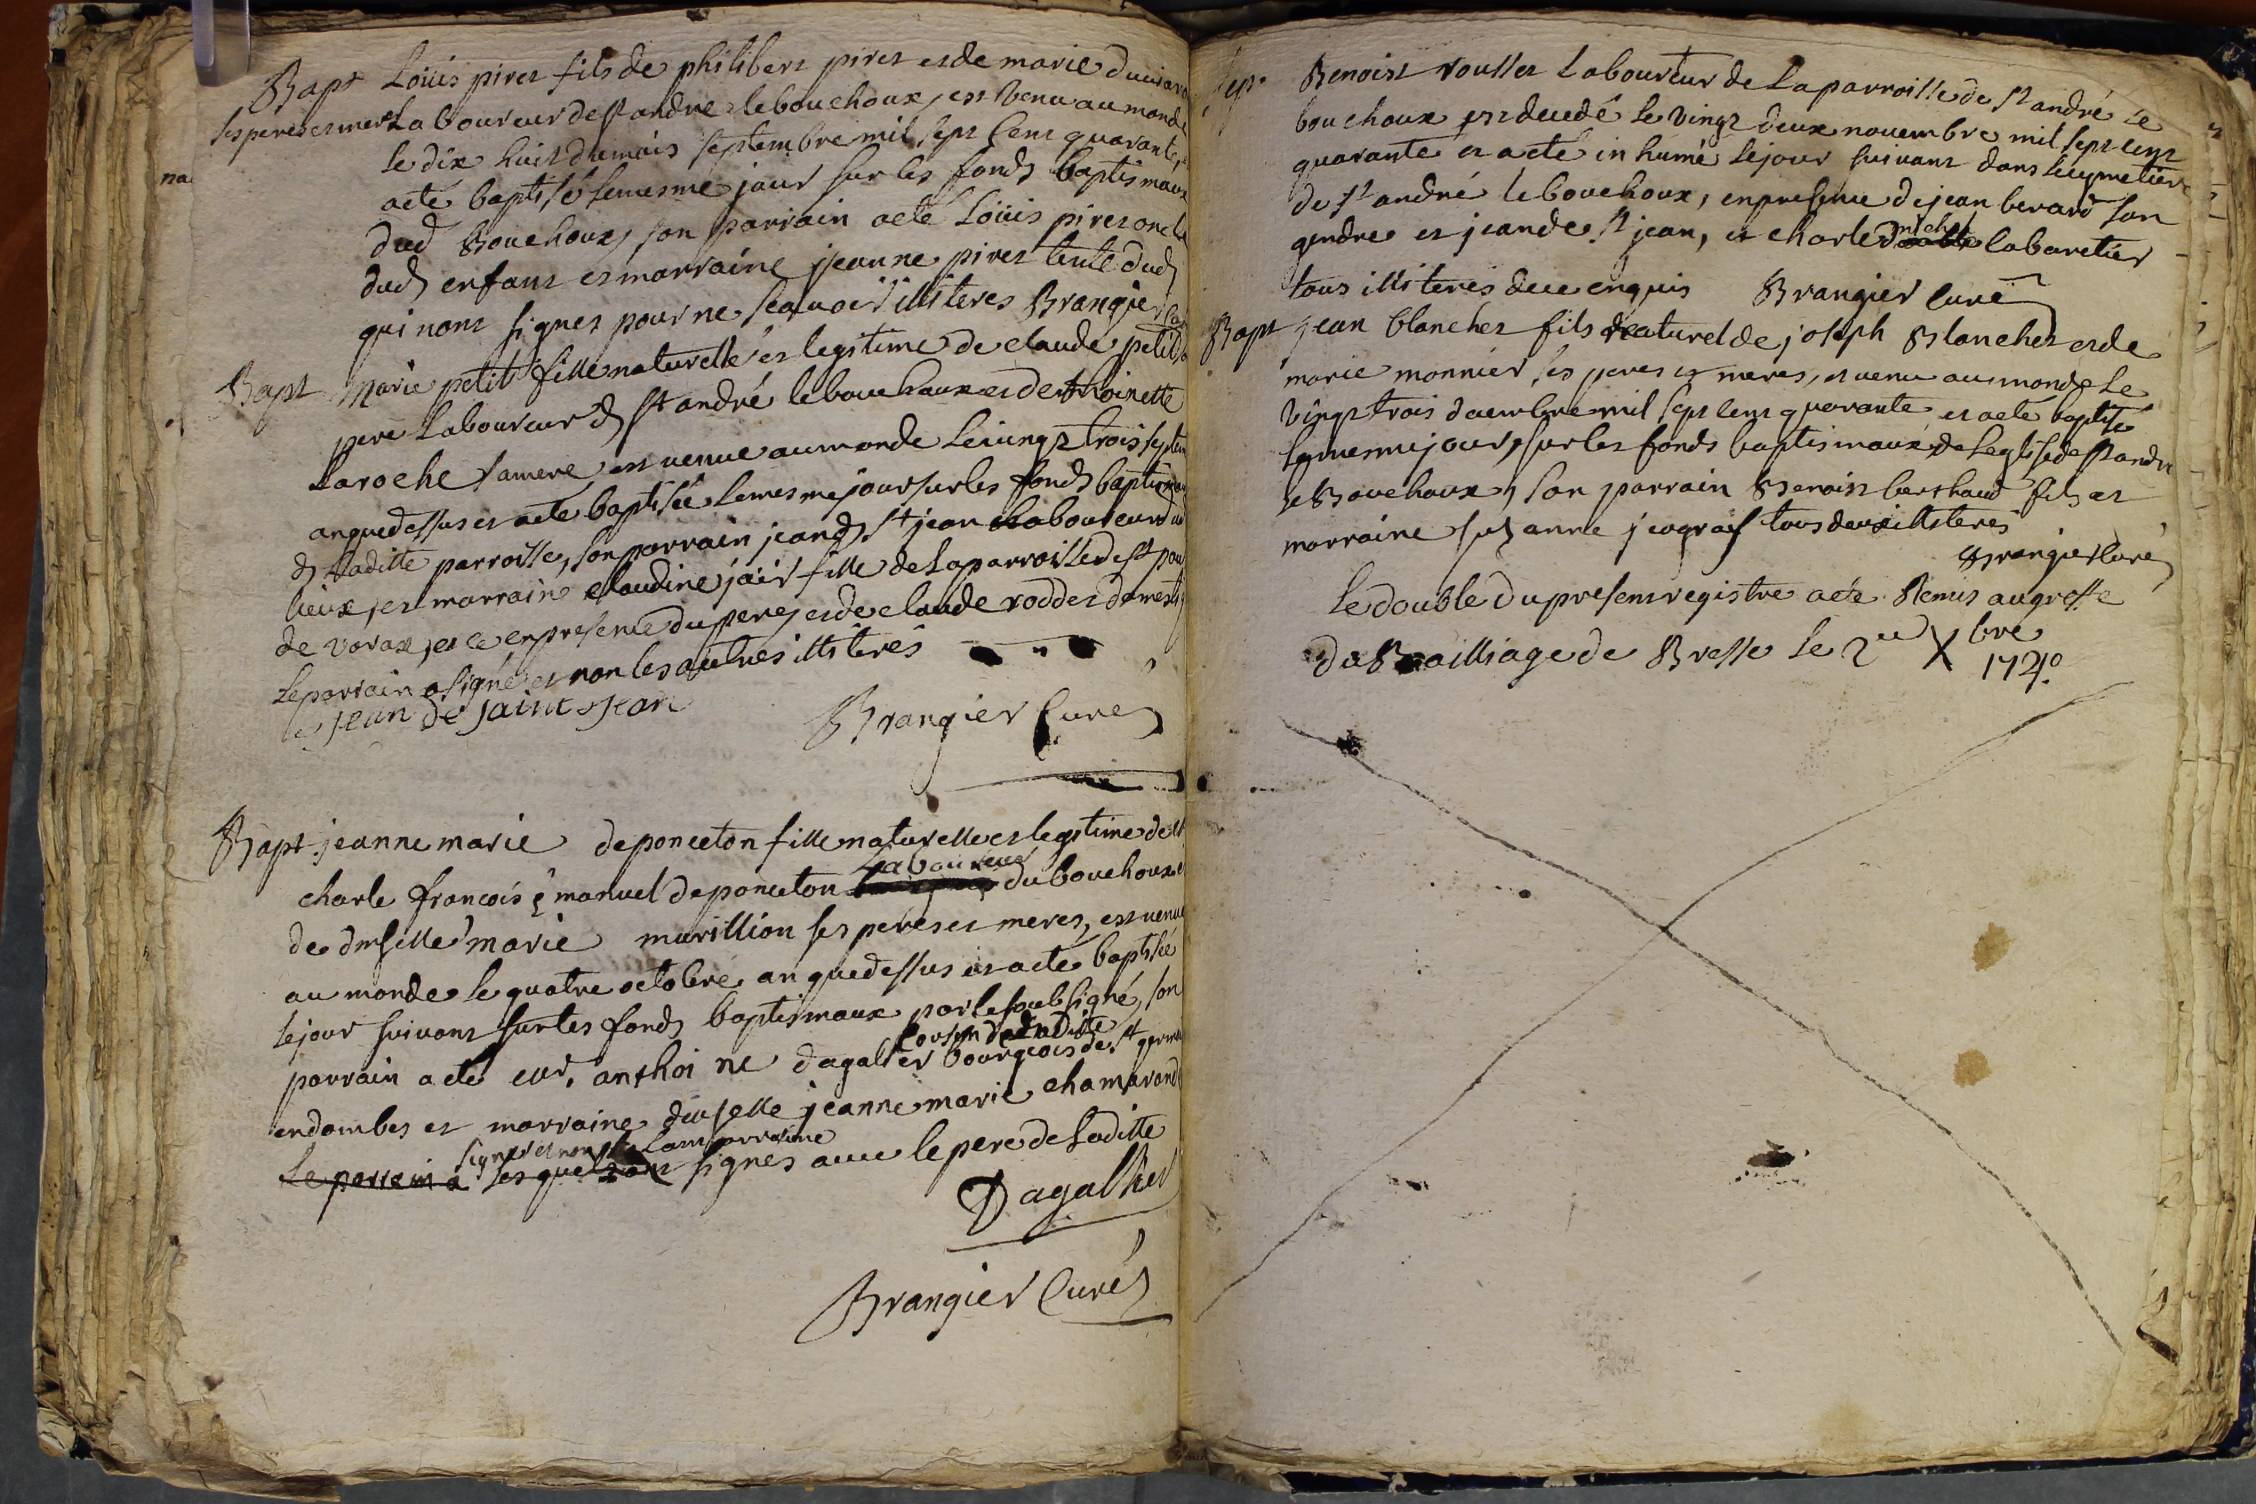 Bapt Loüis piret fils de philibert piret et de marie
ses peres et meres Laboureur de st andre le bouchoux, est venu au monde
le dix huit du mois septembre mil sept cent quarante,
a eté baptisé le mesme jour sur les fonds baptismaux
dud Bouchoux, son parrain a eté Loüis piret oncle
dud enfant et marraine jeanne piret tente dud
qui nont signer pour ne scauoir illiteres Brangier
Bapt Marie petit fille naturelle et legitime de claude petit
pere Laboureur d st andré le bouchoux et de thoinette
Laroche sa mere, est venue au monde le vingt trois septem
an que dessus et a eté baptisée le mesme jour sur les fonds baptismaux
d laditte parroisse, son parrain jean d st jean Laboureur dud
lieux, et marraine claudine jair fille de la parroisse de st paul
de varax, et ce en presence du pere, et de claude roddet
le parrain a signé et non les autres illiterés
jean de saint jean
Brangier Curé
Bapt jeanne marie deponceton fille naturelle et legitime de
Laboureur
charle francois emanuel deponceton du bouchoux et
de dmselle marie murillion ses peres et meres, est venue
au monde le quatre octobre an que dessus et a eté baptisée
le jour suivant sur les fonds baptismaux par le subsigné, son
cousin de ladite
parrain a eté anthoine dagallier bourgeois de st germain
en dombes et marraine dmselle jeanne marie chamarand
signé et non la marraine
Le parrain a lesquels ont signes avec le pere de laditte
Dagallier
Brangier Curé
Sep. Benoist rousset Laboureur de la parroisse de st andré le
bouchoux est decedé le vingt deux novembre mil sept cent
quarante et a eté inhumé le jour suivant dans le cymetiere
de st andré le bouchoux, en presence de jean berard son
michel
gendre et jean de st jean, et charle cabaretier
tous illiterés de ce enquis Brangier Curé
Bapt jean blanchet fils naturel de joseph Blanchet et de
marie monnier ses peres et meres, est venu au monde le
vingt trois decembre mil sept cent quarante et a eté baptisé
le mesme jour, sur les fonds baptismaux de leglise de st andre
le Bouchoux, son parrain Benoist berthaud fils et
marraine suzanne tous deux illiterés
Brangier Curé
Le double du present registre a eté Remis au greffe
du Bailliage de Bresse le 2 Xbre
1740